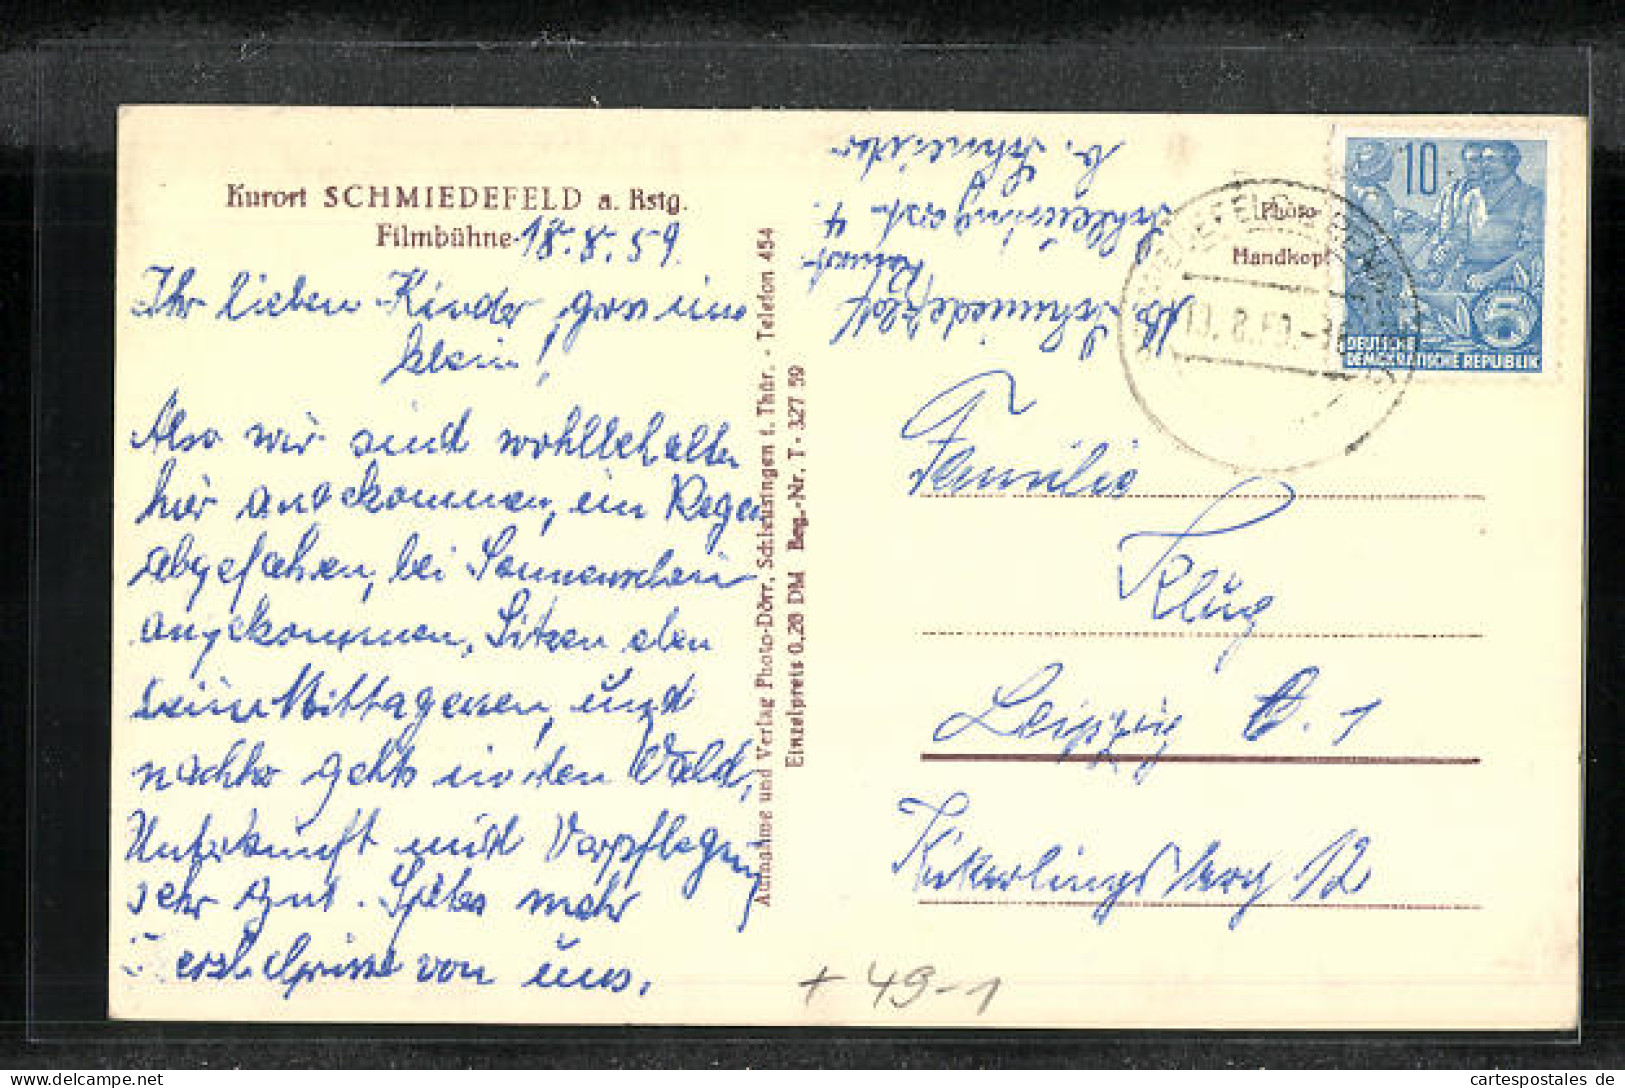 Kurort SCHMIEDEFELD a. Rstg.
Filmbühne
18.8.59.
Ihr lieben Kinder, gross und
klein!
Also wir sind wohlbehalten
hier angekommen, ein Regen
abgefahren, bei Sonnenschein
angekommen. Sitzen eben
beim Mittagessen, und
nachher gehts in den Wald,
Unterkunft und Verpflegung
sehr gut. Später mehr
herzl. Grüsse von uns.
Aufnahme und Verlag Photo-Dörr, Schleusingen i. Thür. - Telefon 454
Einzelpreis 0,28 DM Beg.-Nr. T - 327 59
Schmiedefeld
Schleusingerstr. 4
b. Schneider
Photo-
Handkopf
10
5
DEUTSCHE
DEMOKRATISCHE REPUBLIK
Familie
Klug
Leipzig C. 1
Kickerlingsberg 12
+ 49-1
cartespostales de